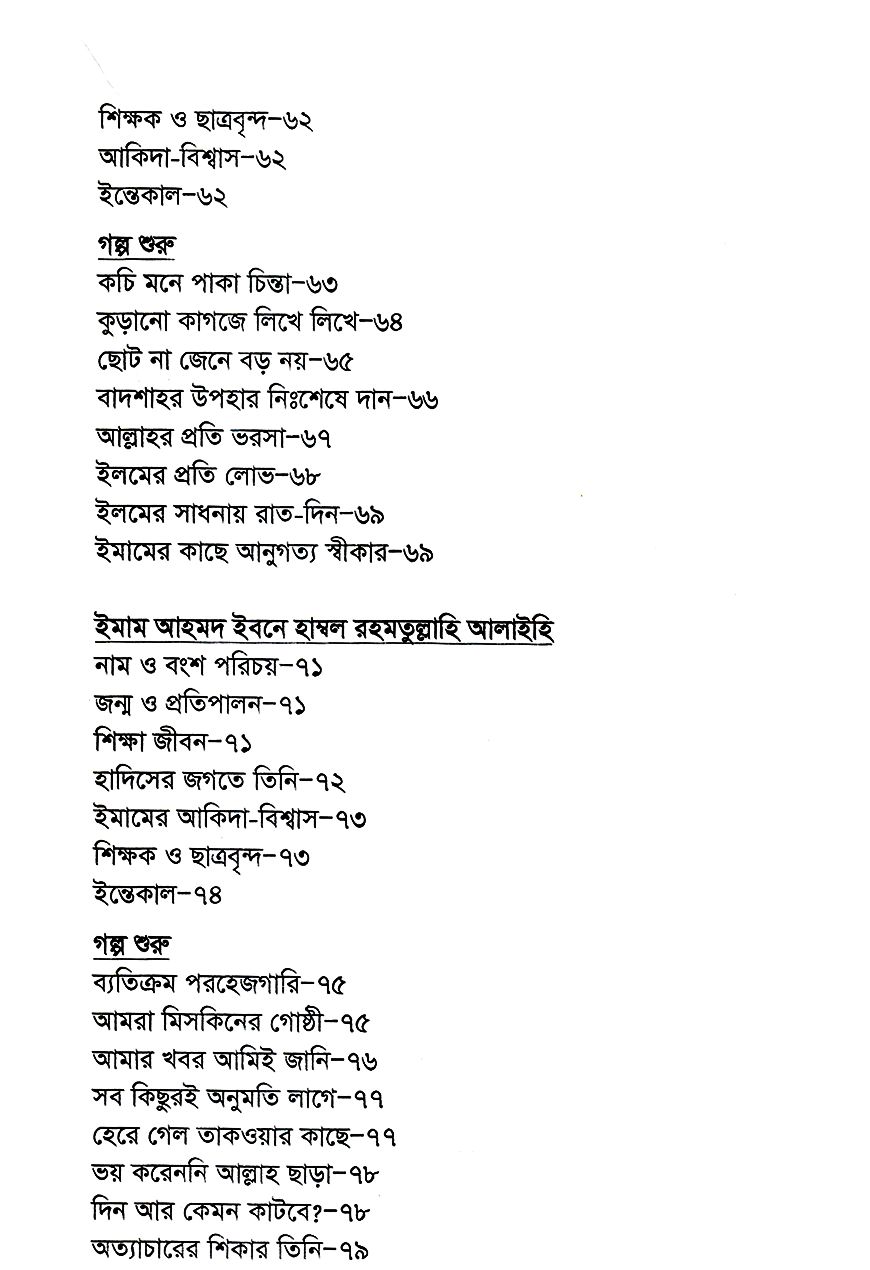 শিক্ষক ও ছাত্রবৃন্দ–৬২
আকিদা-বিশ্বাস–৬২
ইন্তেকাল–৬২
গল্প শুরু
কচি মনে পাকা চিন্তা–৬৩
কুড়ানো কাগজে লিখে লিখে–৬৪
ছোট না জেনে বড় নয়–৬৫
বাদশাহর উপহার নিঃশেষে দান–৬৬
আল্লাহর প্রতি ভরসা–৬৭
ইলমের প্রতি লোভ–৬৮
ইলমের সাধনায় রাত-দিন–৬৯
ইমামের কাছে আনুগত্য স্বীকার–৬৯
ইমাম আহমদ ইবনে হাম্বল রহমতুল্লাহি আলাইহি
নাম ও বংশ পরিচয়–৭১
জন্ম ও প্রতিপালন–৭১
শিক্ষা জীবন–৭১
হাদিসের জগতে তিনি–৭২
ইমামের আকিদা-বিশ্বাস–৭৩
শিক্ষক ও ছাত্রবৃন্দ–৭৩
ইন্তেকাল–৭৪
গল্প শুরু
ব্যতিক্রম পরহেজগারি–৭৫
আমরা মিসকিনের গোষ্ঠী–৭৫
আমার খবর আমিই জানি–৭৬
সব কিছুরই অনুমতি লাগে–৭৭
হেরে গেল তাকওয়ার কাছে–৭৭
ভয় করেননি আল্লাহ ছাড়া–৭৮
দিন আর কেমন কাটবে?–৭৮
অত্যাচারের শিকার তিনি–৭৯